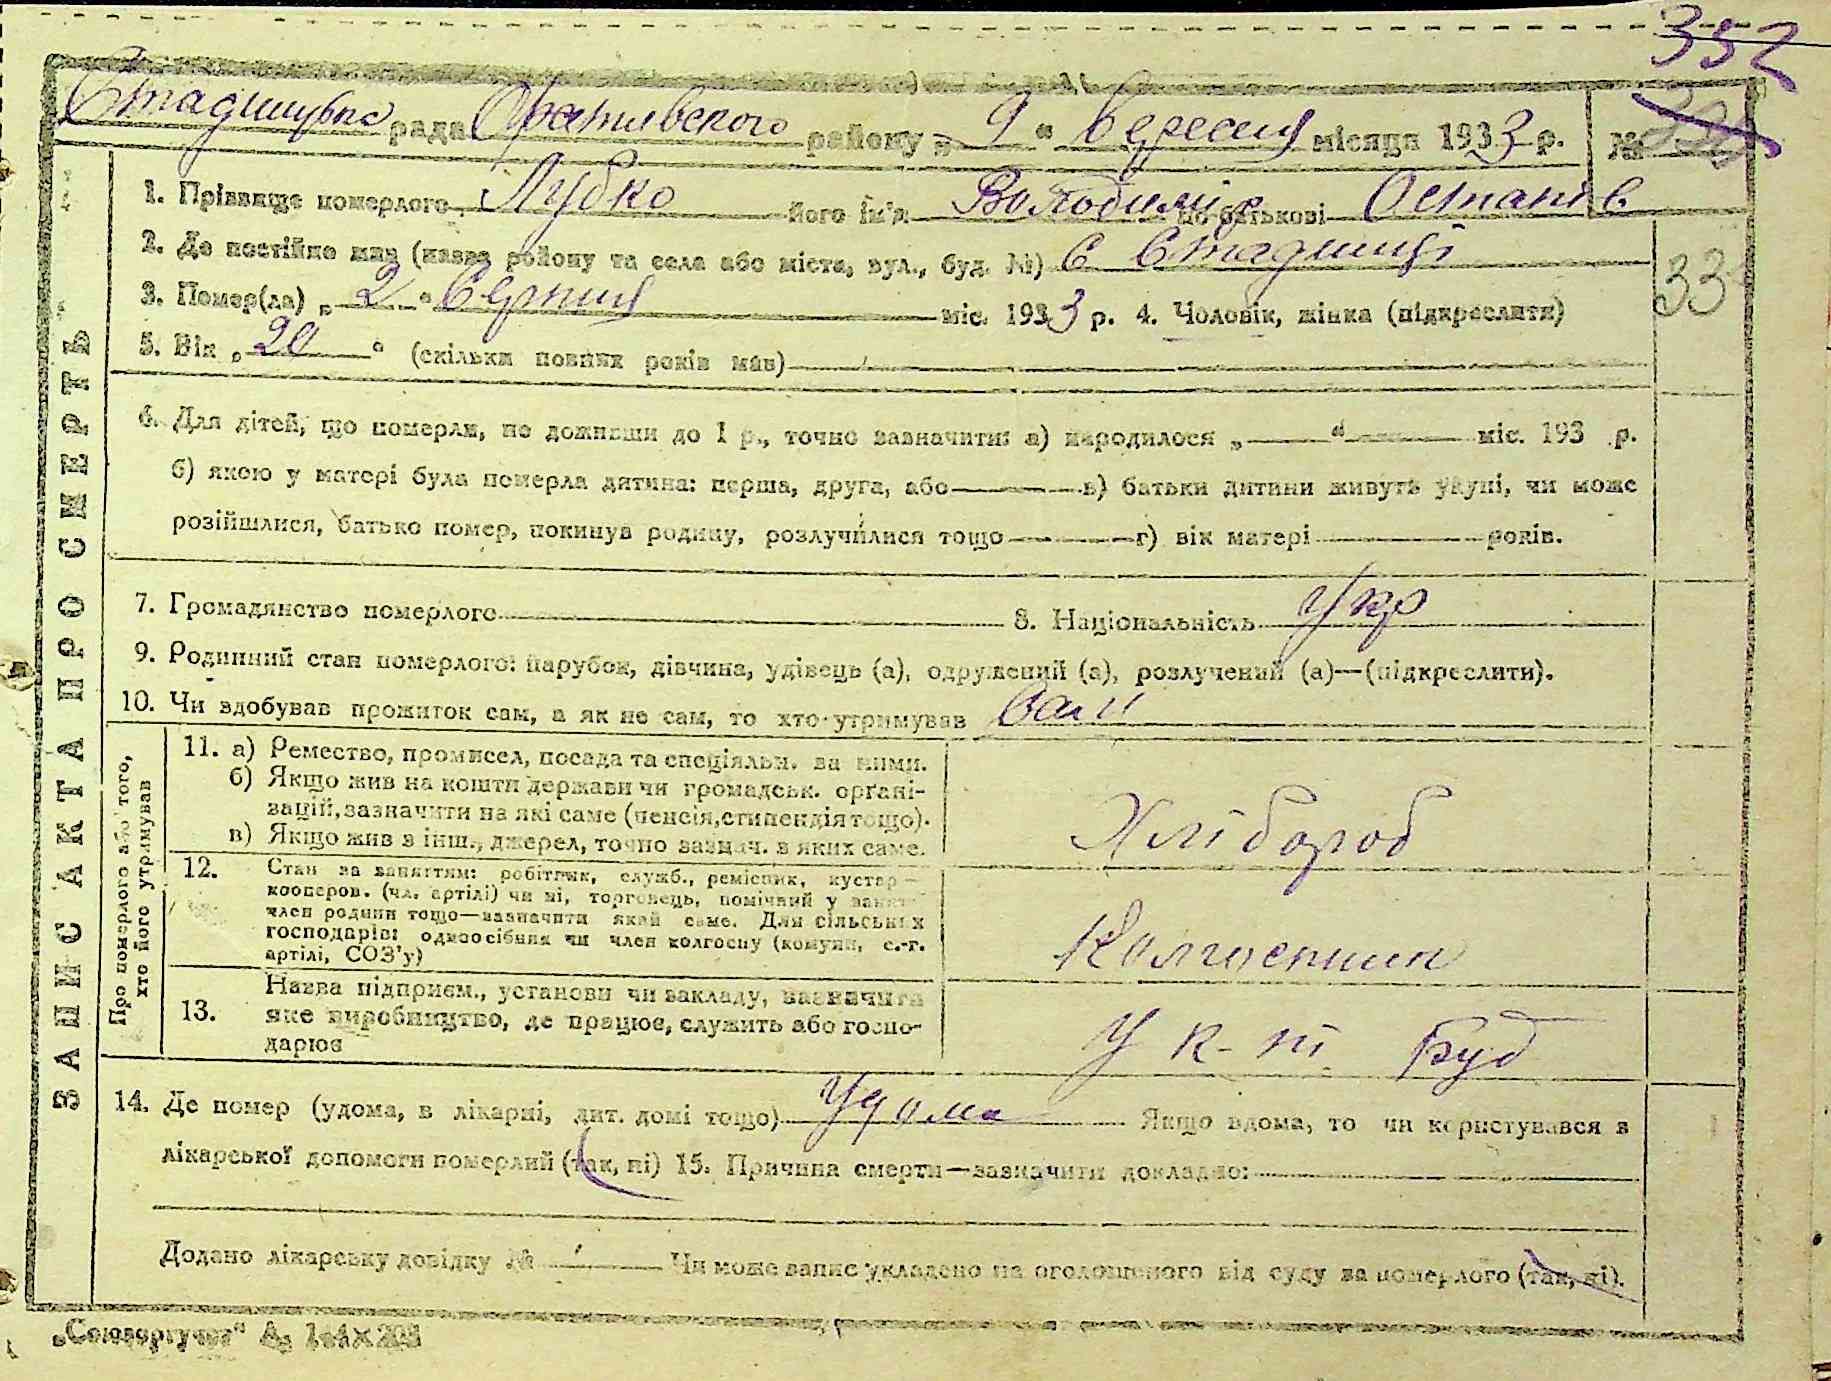 352
Стадницька рада Фастівського району „ 9 “ Вересня місяця 1933 р. №
1. Прізвище померлого Лубко його їм'я Володимір по батькові Остапів
2. Де постійно жив (назва району та села або міста, вул., буд. №) С Стадниці
33
3. Помер(ла) „ 2 “ Серпня міс. 1933 р. 4. Чоловік, жінка (підкреслити)
5. Вік „ 20 “ (скільки повних років мав)
6. Для дітей, що померли, не доживши до 1 р., точно зазначити: а) народилося „ “ міс. 193 р.
б) якою у матері була померла дитина: перша, друга, або в) батьки дитини живуть укупі, чи може
розійшлися, батько помер, покинув родину, розлучилися тощо г) вік матері років.
7. Громадянство померлого 8. Національність Укр
9. Родинний стан померлого: парубок, дівчина, удівець (а), одружений (а), розлучений (а)—(підкреслити).
10. Чи здобував прожиток сам, а як не сам, то хто утримував Сам
ЗАПИС АКТА ПРО СМЕРТЬ
Про померлого або того,
хто його утримував
11. а) Ремество, промисел, посада та спеціяльн. за ними.
б) Якщо жив на кошти держави чи громадськ. органі-
зацій, зазначити на які саме (пенсія, стипендія тощо).
в) Якщо жив з інш., джерел, точно зазнач. з яких саме.
Хлібороб
12. Стан за заняттям: робітник, служб., ремісник, кустар—
кооперов. (чл. артілі) чи ні, торговець, помічний у занят
член родини тощо—зазначити який саме. Для сільських
господарів: одноосібник чи член колгоспу (комуни, с.-г.
артілі, СОЗ'у)
Колгоспник
13. Назва підприєм., установи чи закладу, зазначити
яке виробництво, де працює, служить або госпо-
дарює
У к-пі Буд
14. Де помер (удома, в лікарні, дит. домі тощо) Удома Якщо вдома, то чи користувався з
лікарської допомоги померлий (так, ні) 15. Причина смерти—зазначити докладно:
Додано лікарську довідку № Чи може запис укладено на оголошеного від суду за померлого (так, ні).
„Союзоргучет“